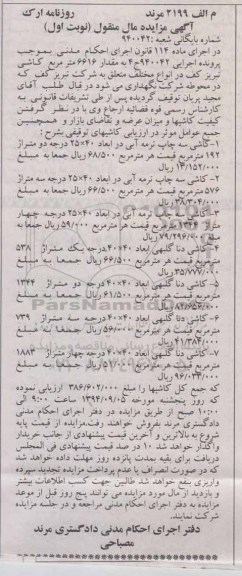 م الف ۲۱۹۹ مرند روزنامه ارک
آگهی مزایده مال منقول (نوبت اول)
شماره بایگانی شعبه: ۹۴۰۰۴۲
در اجرای ماده ۱۱۴ قانون اجرای احکام مدنی بموجب
پرونده اجرایی ۹۴۰۰۴۲ج۴ به مقدار ۶۶۱۶ متر مربع کاشی
تبریز کف در انواع مختلف متعلق به شرکت تبریز کف که
در محوطه شرکت نگهداری می شود در قبال طلب آقای
مجید یزبان توقیف گردیده پس از طی تشریفات قانونی به
کارشناس رسمی قوه قضائیه ارجاع وی با در نظر گرفتن
کیفیت کاشیها و میزان عرضه و تقاضای بازار و همچنین
جمیع عوامل موثر در ارزیابی کاشیهای توقیفی بشرح:
۱-کاشی سه چاپ نرمه آبی در ابعاد ۴۰×۲۵ درجه دو متراژ
۱۹۲ مترمربع قیمت هر مترمربع ۶۸/۵۰۰ ریال جمعا به مبلغ
۱۳/۱۵۲/۰۰۰ ریال
۲-کاشی سه چاپ نرمه آبی در ابعاد ۴۰×۲۵ درجه سه متراژ
۵۷۶ مترمربع قیمت هر مترمربع ۶۶/۵۰۰ ریال جمعا به مبلغ
۳۸/۳۰۴/۰۰۰ ریال
۳-کاشی چاپ نرمه آبی در ابعاد ۴۰×۲۵ درجه چهار
متراژ ۱۳۴۴ مترمربع قیمت هر مترمربع ۵۹/۰۰۰ ریال جمعا به
مبلغ ۷۹/۲۹۶/۰۰۰ ریال
۴-کاشی دنا گلبهی ابعاد ۴۰×۴۰ درجه یک متراژ ۵۳۸
مترمربع قیمت هر مترمربع ۶۶/۵۰۰ ریال جمعا به مبلغ
۳۵/۷۷۷/۰۰۰ ریال
۵- کاشی دنا گلبهی ابعاد ۴۰×۴۰ درجه دو متراژ ۱۳۴۴
مترمربع قیمت هر مترمربع ۶۱/۵۰۰ ریال جمعا به مبلغ
ریال
۶- کاشی دنا گلبهی ابعاد ۴۰×۴۰ درجه سه متراژ ۷۳۹
مترمربع قیمت هر مترمربع ۵۶/۰۰۰ ریال جمعا به مبلغ
۴۱/۳۸۴/۰۰۰ ریال
۷-کاشی دنا گلبهی ابعاد ۴۰×۴۰ درجه چهار متراژ ۱۸۸۳
مترمربع قیمت هر مترمربع ۵۱/۰۰۰ ریال جمعا به مبلغ
۹۶/۰۳۳/۰۰۰ ریال
که جمع کل کاشیها را مبلغ ۳۸۶/۶۰۲/۰۰۰ ارزیابی نموده
که روز پنجشنبه مورخه ۱۳۹۴/۰۹/۰۵ ساعت ۹:۰۰ الی
۱۰:۰۰ صبح از طریق مزایده در دفتر اجرای احکام مدنی
دادگستری مرند بفروش خواهند رفت.مزایده از قیمت پایه
شروع به بالاترین و آخرین قیمت پیشنهادی از جانب خریدار
واگذار خواهد شد ۱۰ در صد قیمت پیشنهادی فی المجلس
دریافت برای بقیه بمدت پانزده روز مهلت داده خواهد شد
که در صورت انصراف یا عدم پرداخت مزایده تجدید سپرده
واریزی بنفع خواهد شد طالبین جهت کسب اطلاعات بیشتر
و بازدید از مال مورد مزایده می توانند پنج روز قبل از موعد
مزایده به دفتر اجرای احکام مدنی مراجعه و در جلسه مزایده
شرکت نمایند.
دفتر اجرای احکام مدنی دادگستری مرند
مصباحی